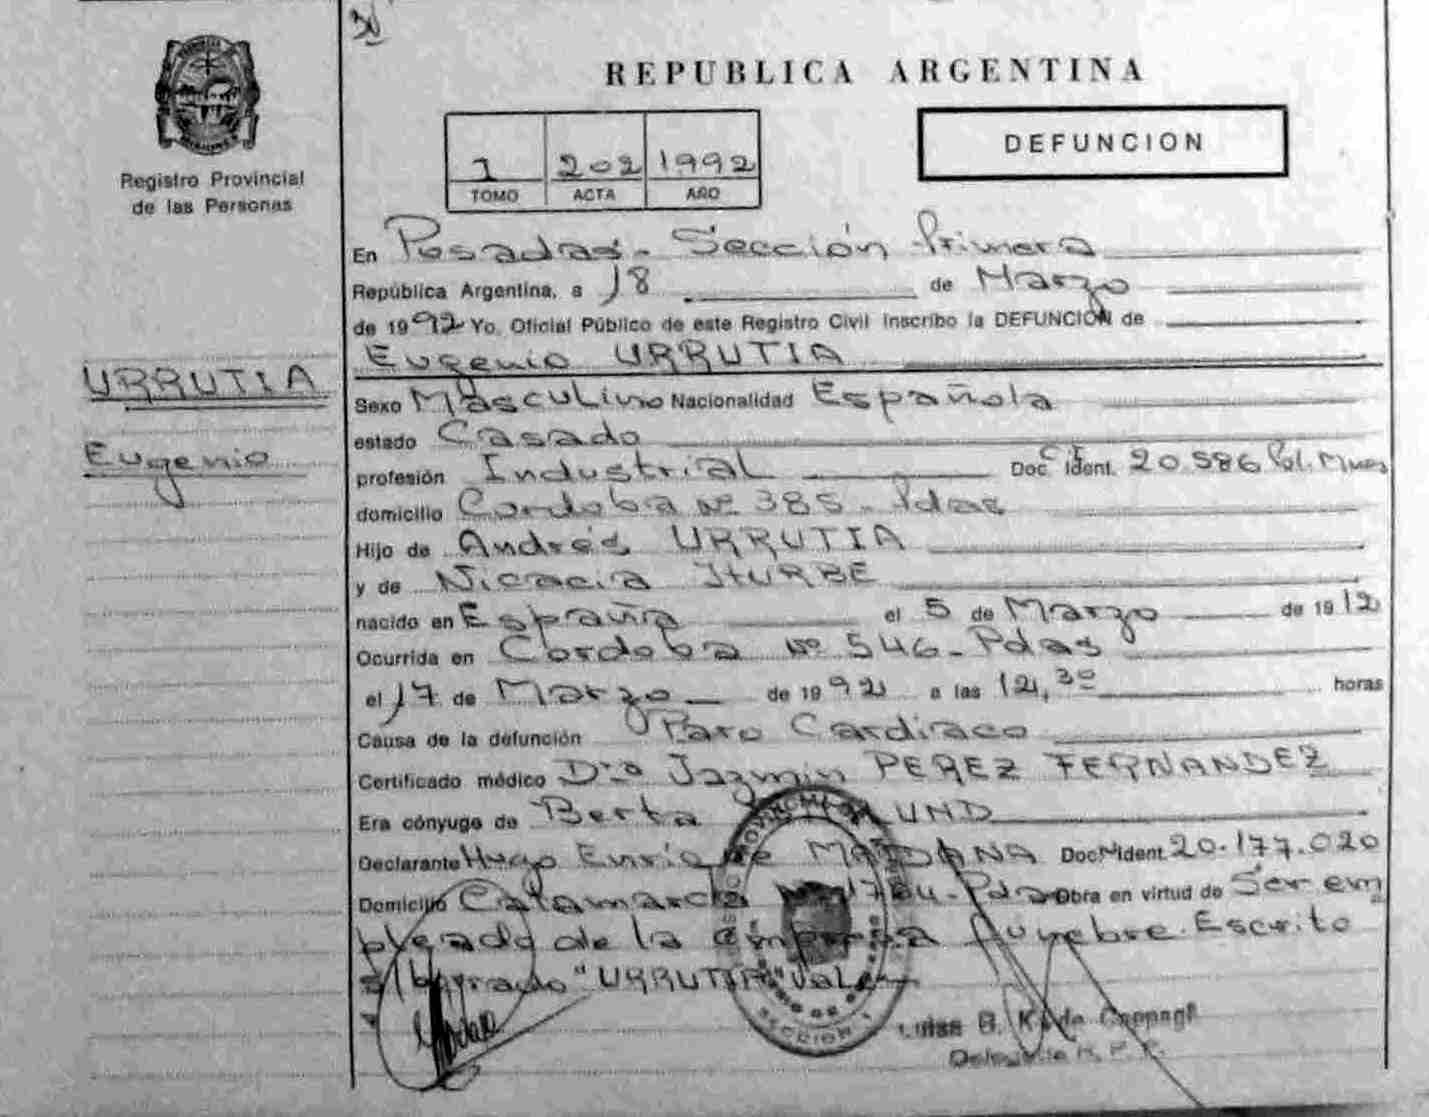 REPUBLICA ARGENTINA
DEFUNCION
1 202 1992
TOMO ACTA AÑO
Registro Provincial
de las Personas
URRUTIA
Eugenio
En Posadas - Sección Primera
República Argentina, a 18 de Marzo
de 1992 Yo, Oficial Público de este Registro Civil inscribo la DEFUNCIÓN de
Eugenio URRUTIA
Sexo Masculino Nacionalidad Española
estado Casado
profesión Industrial Doc. C.I. Ident. 20.586 Pol. Mnes
domicilio Cordoba Nº 385 - Pdas
Hijo de Andrés URRUTIA
y de Nicacia ITURBE
nacido en España el 5 de Marzo de 1912
Ocurrida en Cordoba Nº 546 - Pdas
el 17 de Marzo de 1992 a las 12,30 horas
Causa de la defunción Paro Cardiaco
Certificado médico Dra Jazmin PEREZ FERNANDEZ
Era cónyuge de Berta LUND
Declarante Hugo Enrique MAIDANA Doc. Ident. 20.177.020
Domicilio Catamarca Pdas Obra en virtud de Ser em
pleado de la empresa funebre. Escrito
s/ borrado "URRUTIA" Vale
SECCION 1
Luisa B. K. de
Delegada R. P. P.